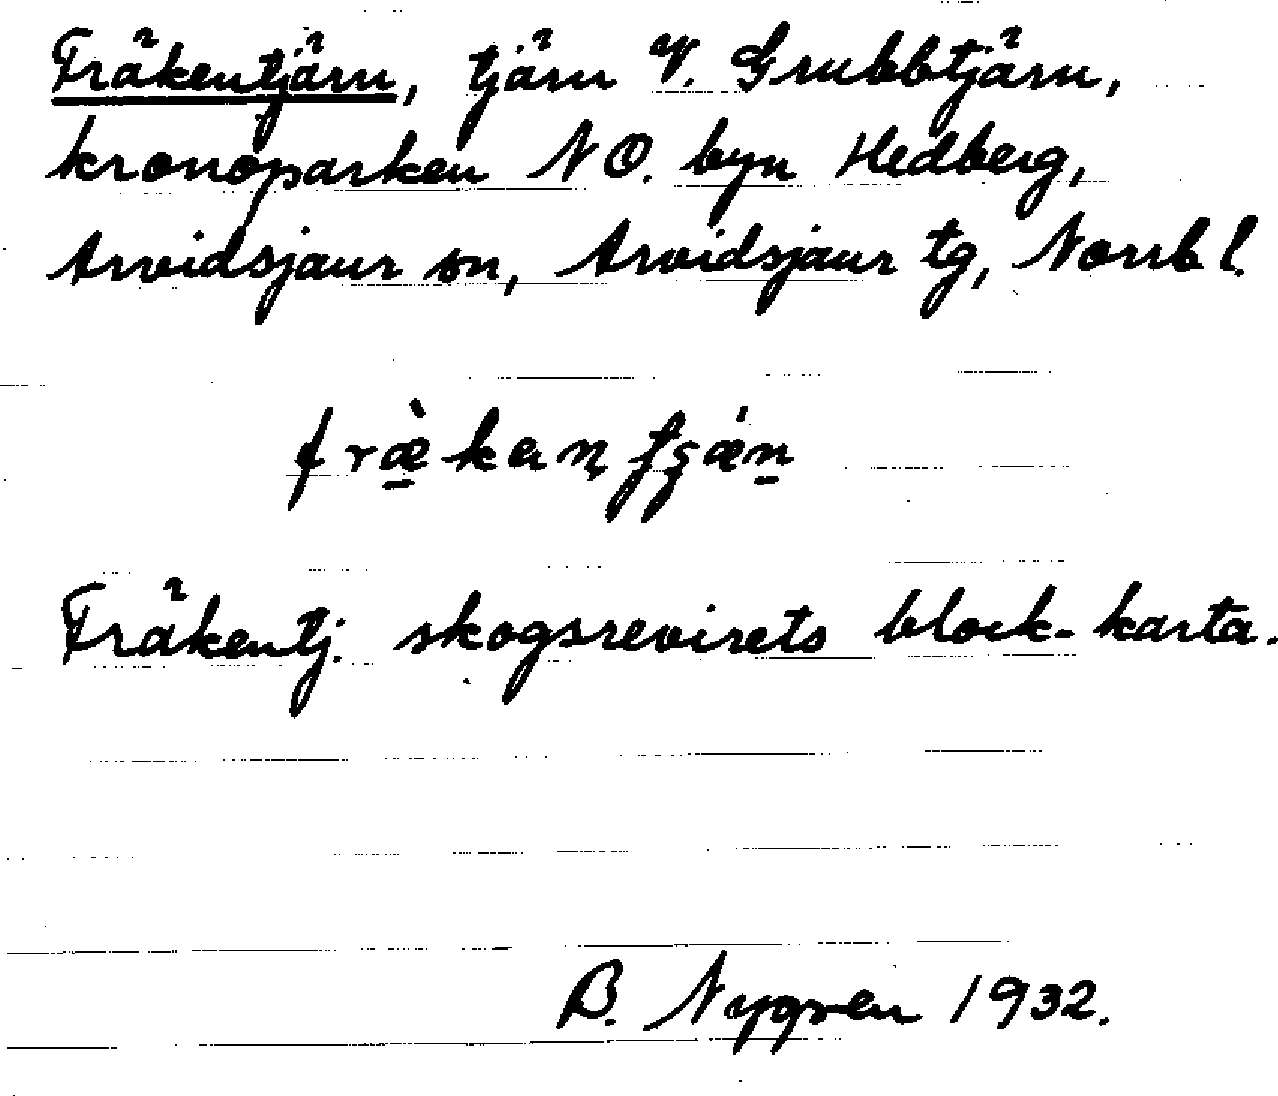 Fräkentjärn, tjärn V. Grubbtjärn,
kronoparken NO. byn Hedberg,
Arvidsjaur sn, Arvidsjaur tg, Norrb l.
Fräkentj. skogsrevirets block-karta.
B. Nygren 1932.